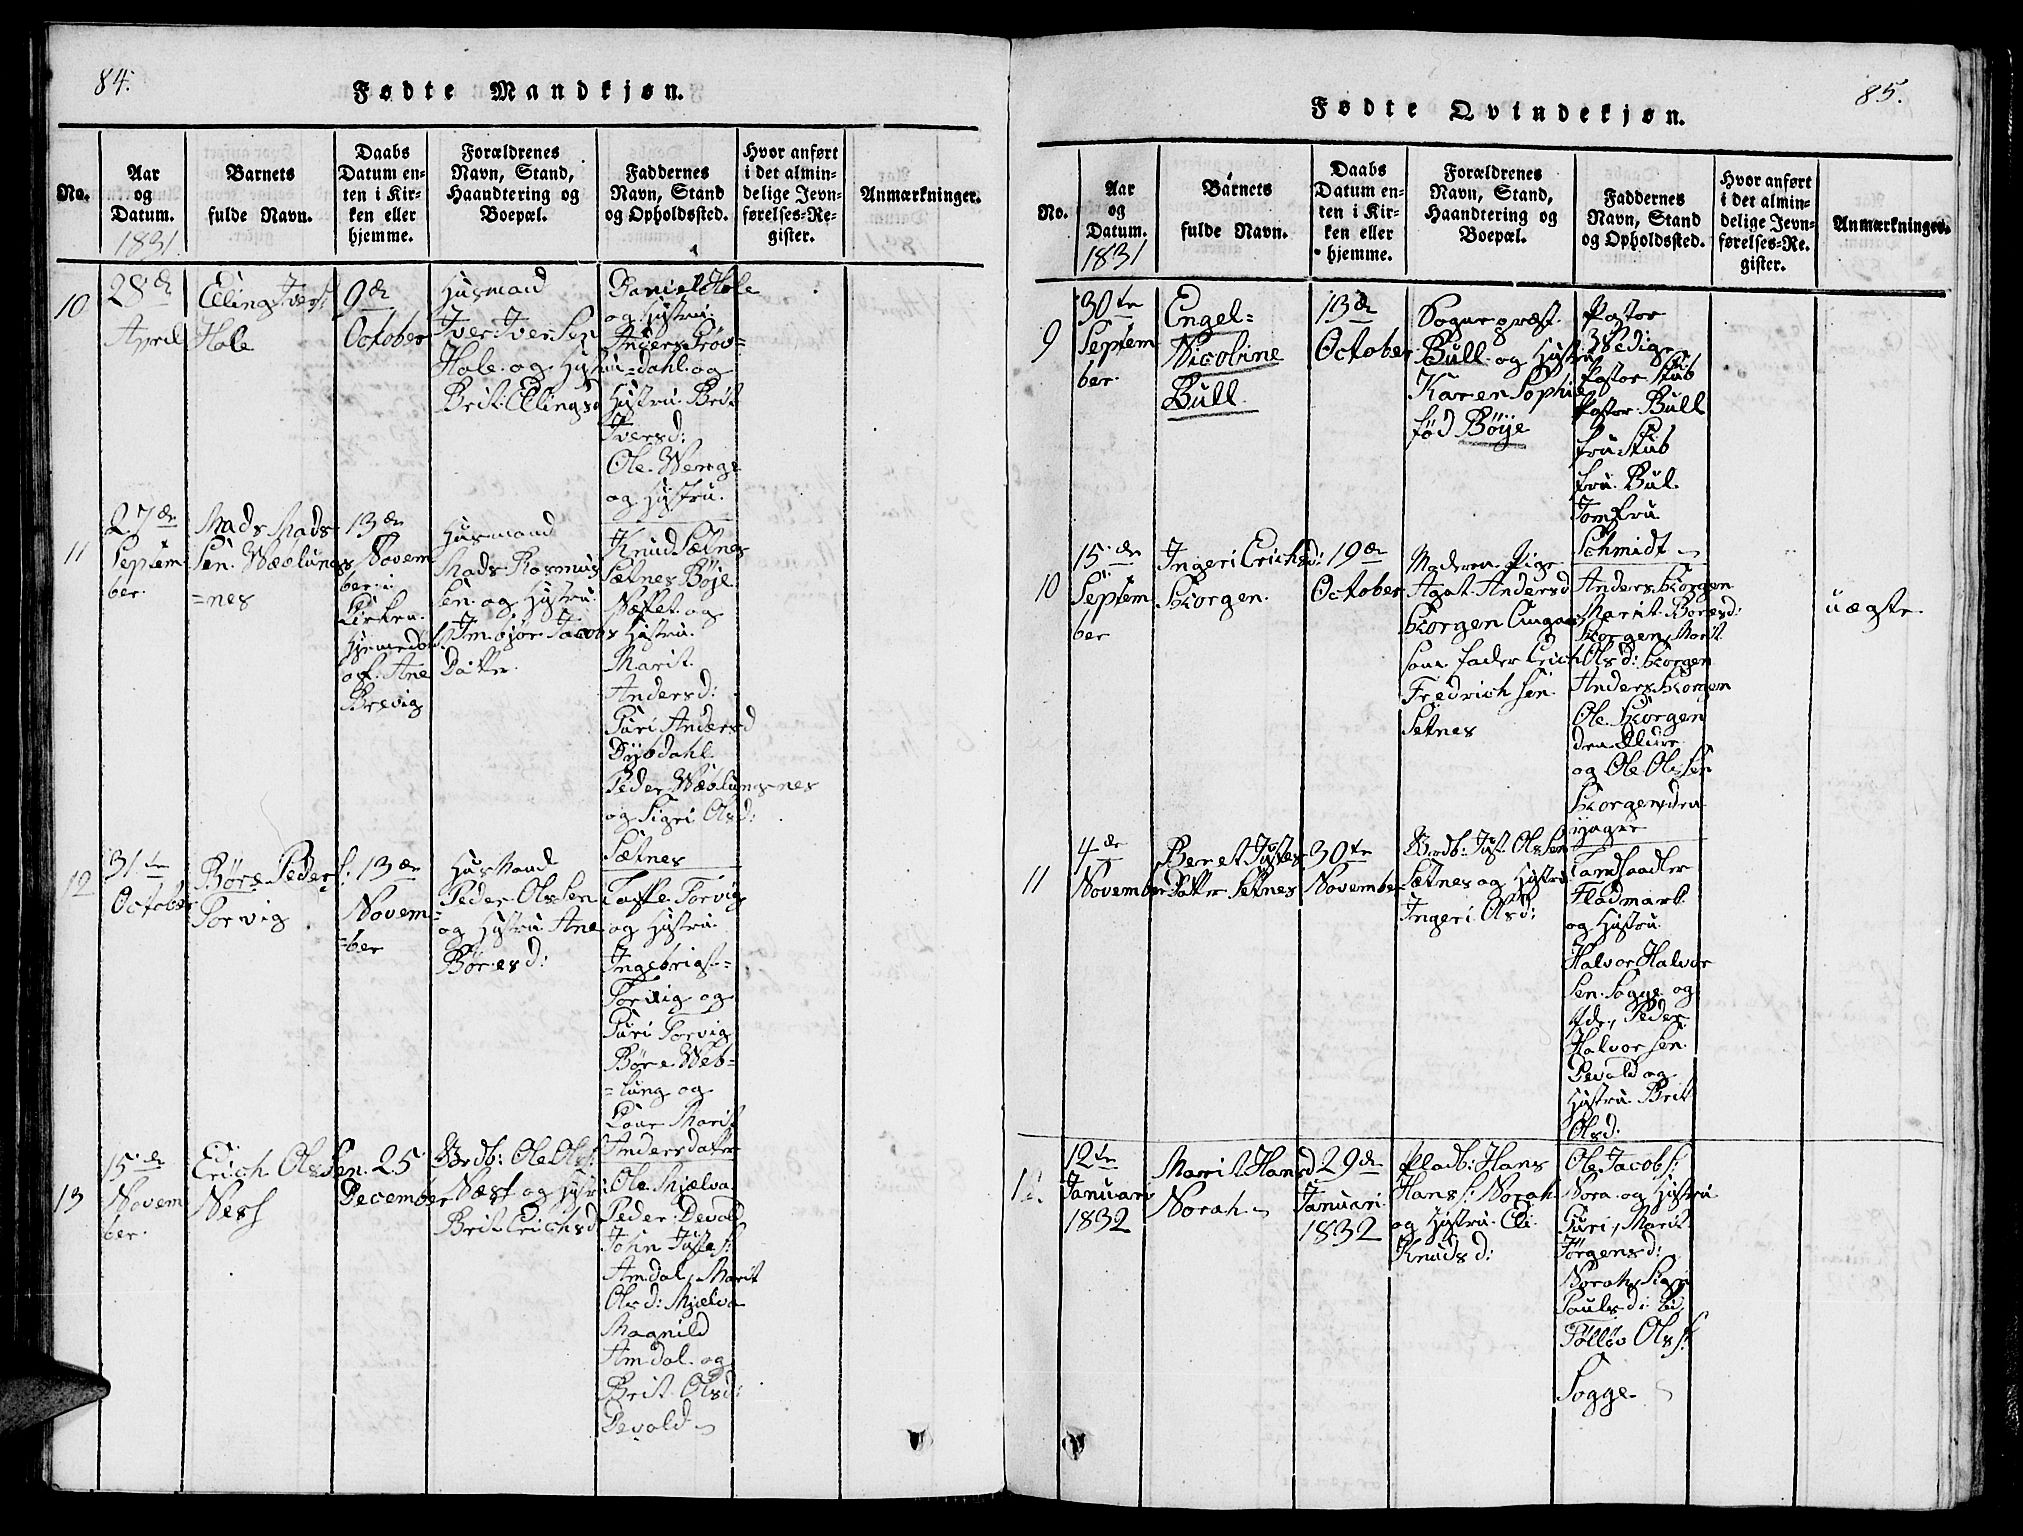 84.
Fødte Mandkjøn.
No.
Aar
og
Datum.
1831
Barnets
fulde Navn.
Daabs
Datum en-
ten i Kir-
ken eller
hjemme.
Forældrenes
Navn, Stand,
Haandtering og
Boepæl.
Faddernes
Navn, Stand
og Opholdssted.
Hvor anført
i det almin-
delige Jevn-
førelses-Re-
gister.
Anmærkninger.
10
28de
April
Elling Ivers:
Hole
9de
October
Husmand
Iver Iver Sen
Hole og Hustru
Brit Ellingsd
Daniel Hole
og Hustru.
Anders Prøv=
=dahl og
Hustru Brit
Iversd:
Ole Wenge
og Hustru.
11
27de
Septem
ber.
Mads Mads
Sen. Wæblungs
=nes
13de
Novem
ber i
Kirken.
Hjemedøbt
af Ane
Brevig
Husmand
Mads Rasmus
Sen og Hustru.
Imbjør Jacobs
Datter.
Knud Sætnes
Sætnes Böje
Næsset og
Hustru.
Marit
Andersd:
Guri Andersd
Dybdahl
Peder Wæblungsnes
og Sigri Olsd:
Sætnes
12
31te
October
Børe Peders:
Torvig
13de
Novem=
=ber
Husmand
Peder Olssen
og Hustru Ane
Børesd:
Taffe Torvig
og Hustru.
Ingebrigt=
Torvig og
Guri Torvig
Børe Web=
=lung og
Kone Marit
Andersdatter
13
15de
Novem
ber.
Erich Olssen
Ness
25
December
Brdb: Ole Ols:
Næss og Hustru
Brit Erichsd
Ole Mjelva
Peder Devold
John Justes:
Amdal, Marit
Olsd: Mjelva
Magnild
Amdal og
Brit Olsd:
Devold
85.
Fødte Qvindekjøn.
No.
Aar
og
Datum.
1831
Barnets
fulde Navn.
Daabs
Datum en-
ten i Kir-
ken eller
hjemme.
Forældrenes
Navn, Stand,
Haandtering og
Boepæl.
Faddernes
Navn, Stand
og Opholdssted.
Hvor anført
i det almin-
delige Jevn-
førelses-Re-
gister.
Anmærkninger.
9
30te
Septem
ber.
Engel=
Nicoline
Bull
13de
October
Sognepræst
Bull og Hustru
Karen Sophie
fød Böije
Pastor
Wedige
Pastor Stub
Pastor Bull
fru Stub
fru Bul.
Jomfru
Schmidt
10
15de
Septem
ber
Ingeri Erichsd:
Skorgen.
19de
October
Moderen Pige
Agat Andersd
Skorgen Angav
som fader Erich
Fredrich Sen.
Setnes
Anders Skorgen
Marit Boresd:
Skorgen, Marit
Olsd: Skorgen
Anders Skorgen
Ole Skorgen
den Eldre
og Ole Olssen
Skorgen den
yngre
uægte.
11
4de
November
Beret Justes
Datter Setnes
30te
November
Brdb: Just Olssen
Sætnes og Hustru
Ingeri Olsd:
Landhandler
Fladmark
og Hustru
Halvor Halvor
Sen Sogge og
Peder
Halvor Sen.
Devold og
Hustru Brit
Olsd.
12.
12te
Januari
1832
Marit Hansd
Norah
29de
Januari
1832
Pladb: Hans
Hans: Norah
og Hustru. Eli
Knudsd:
Ole Jacobs:
Nora og Hustru
Guri, Marit
Jörgensd:
Norah, Sigri
Paulsd:
Tølløv Ols:
Sogge